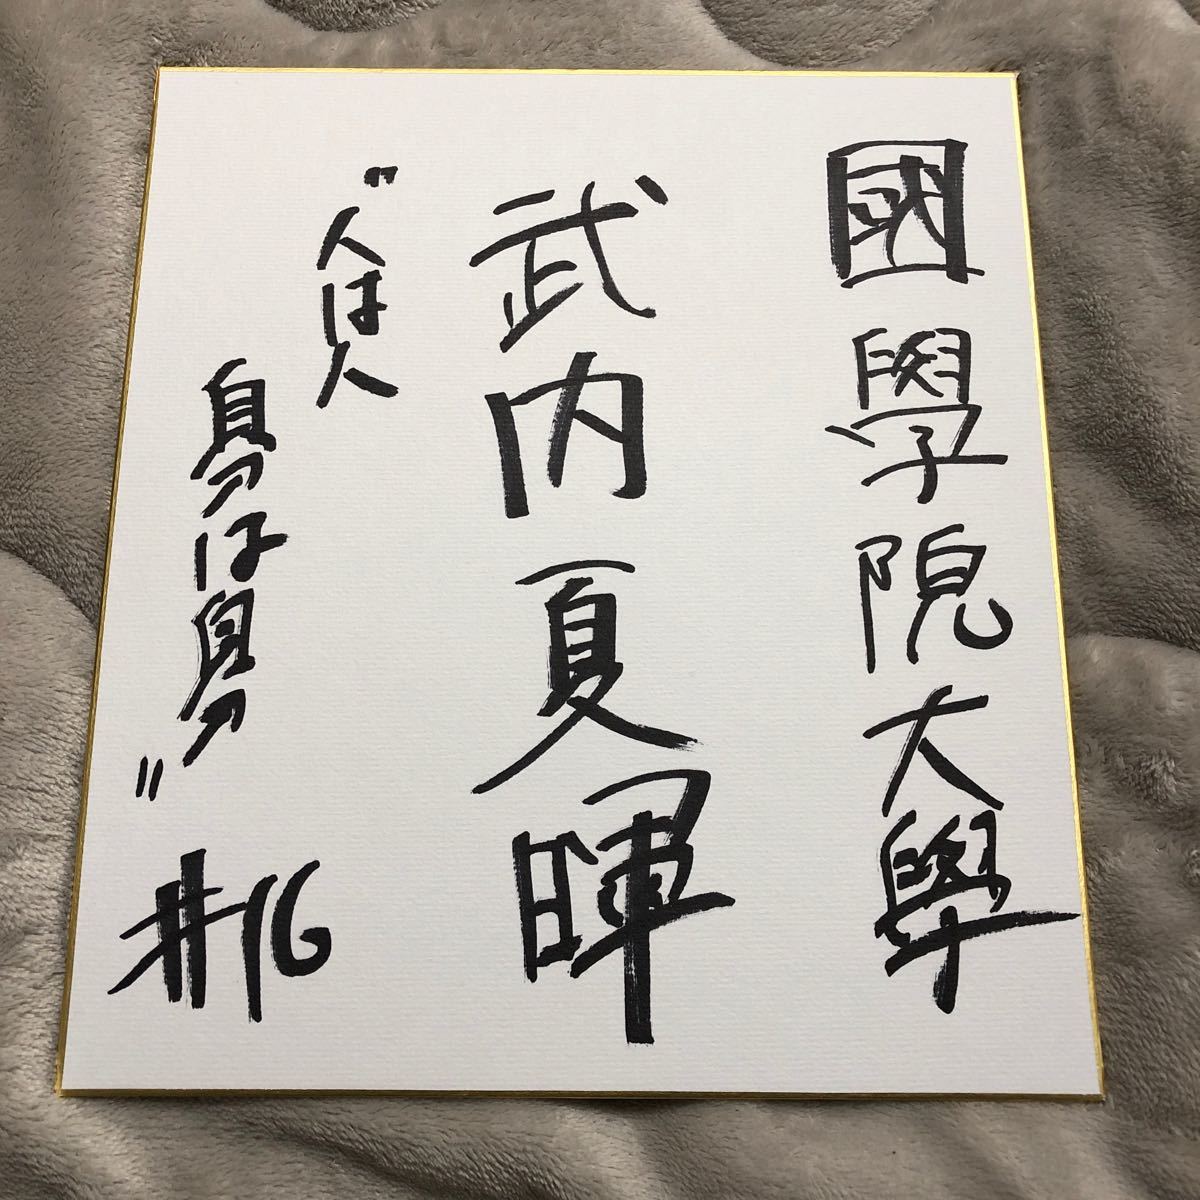 國學院大學
武内夏暉
"人は人
自分は自分"
#16